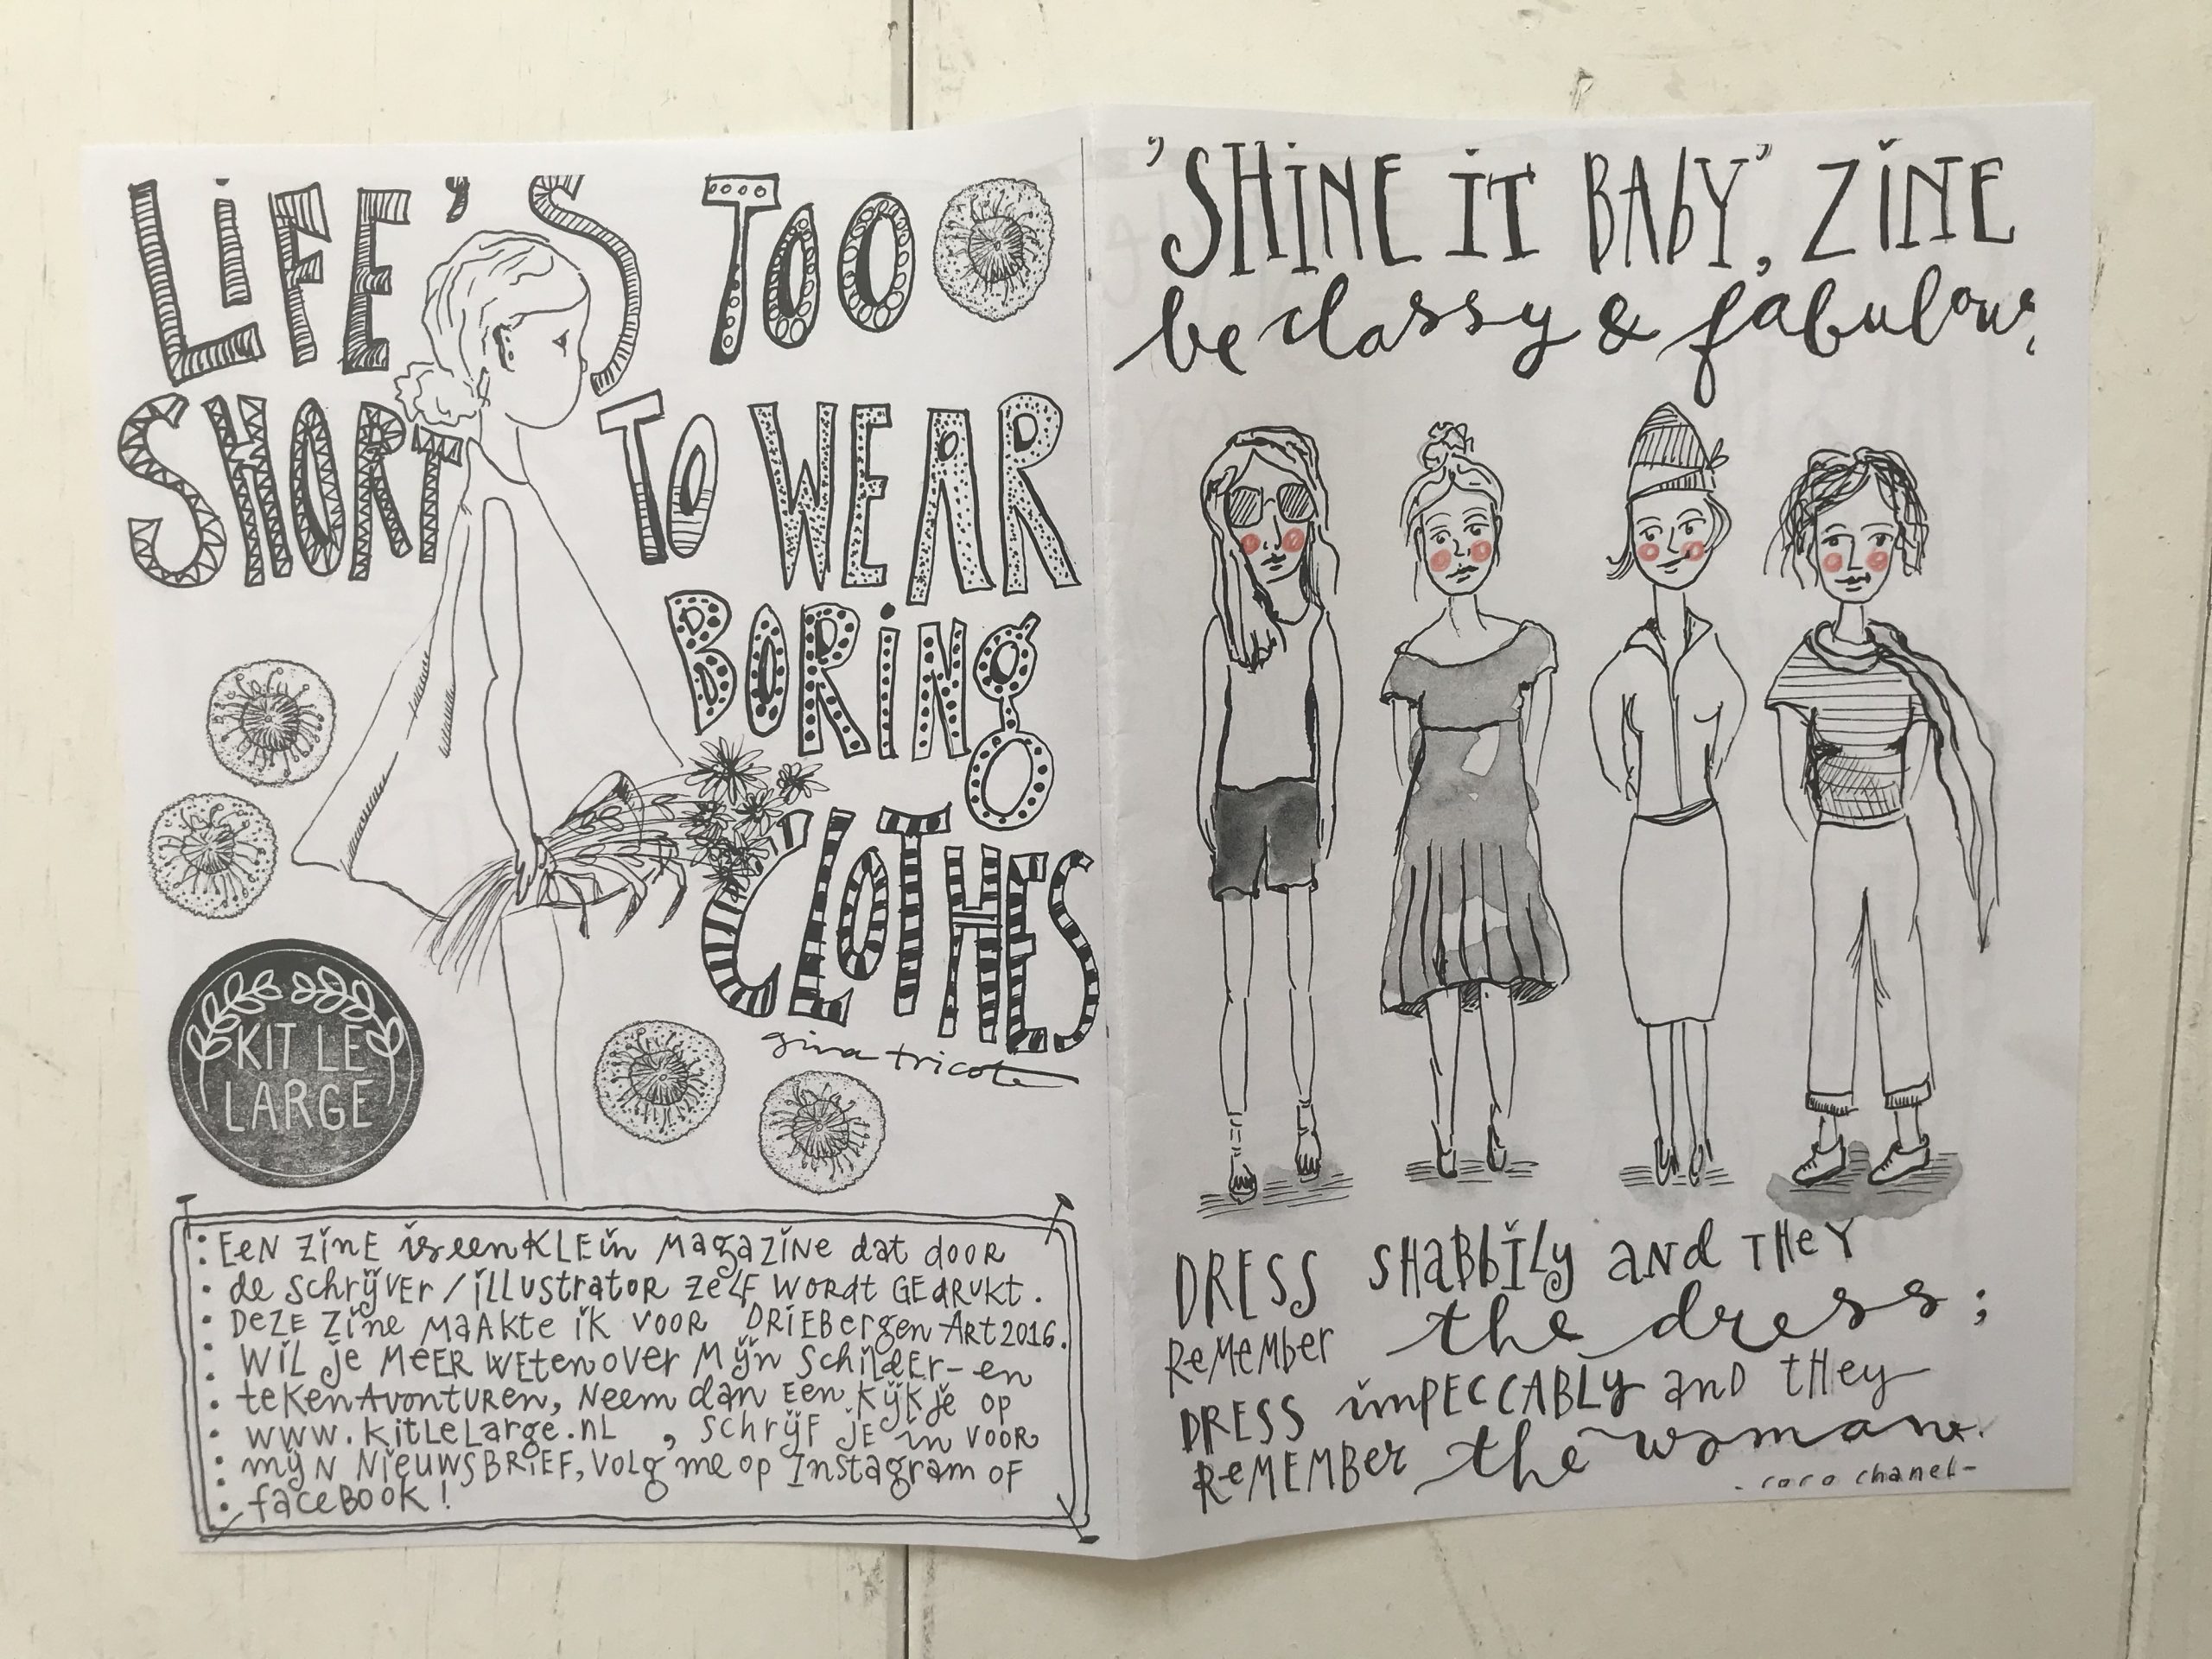 LiFE'S TOO
SHORT TO WEAR
BORiNg
CLOTHES
gina tricot
KIT LE
LARGE
EeN ZiNE is een KLEin MagaZiNe dat dooR
de SchrijvEr / iLLustratoR ZeLF WoRdt GEdRUKt.
DeZE Zine MaAkte iK VooR DRiEBergen Art 2016.
WiL je MeER WEten over Mijn SchilDER-en
teKenAvonTUREN, Neem dan EEn KijKje op
www.KitLeLarge.nL , SchrijF jE in VooR
mijN NieuwsBRiEF, volg me op Instagram oF
faceBOOK!
'SHiNE iT BAbY', ZiNE
be classy & fabulous
DRESS SHaBbiLy aNd THeY
ReMeMber the dress;
DRESS impECCABLy anD tHey
ReMEMBer the woman.
- coco chanel -